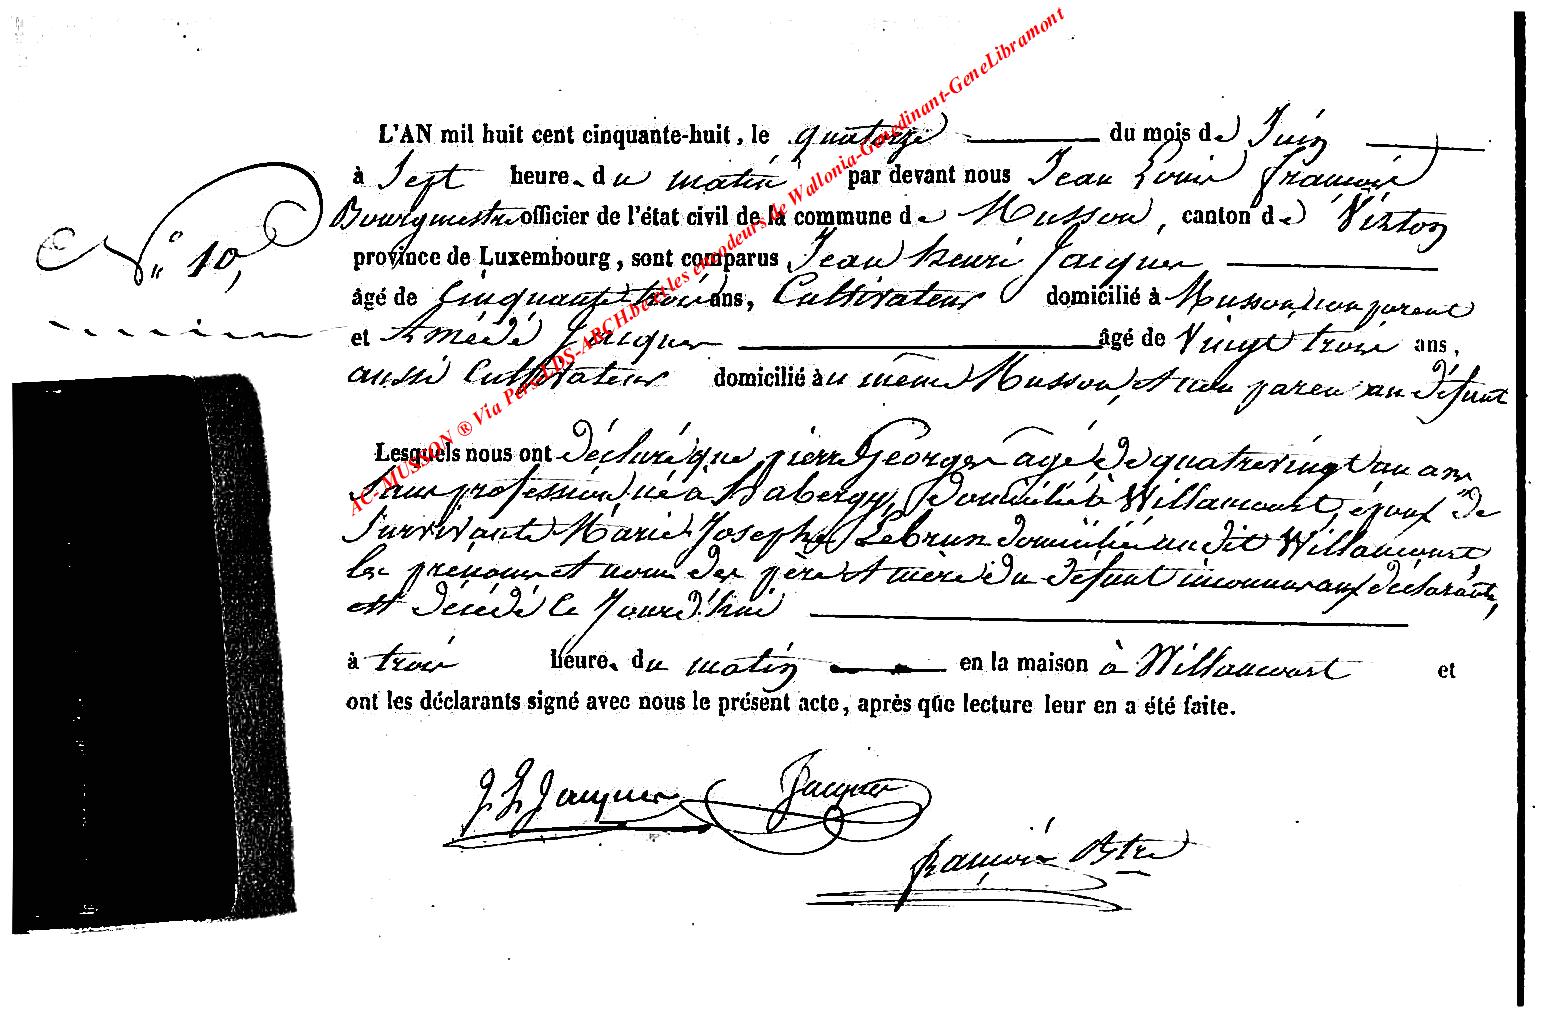 L'AN mil huit cent cinquante-huit, le quatorze du mois de Juin
à Sept heure. du matin par devant nous Jean Louis françois
Bourgmestre officier de l'état civil de la commune de Musson, canton de Virton
N.° 10,
province de Luxembourg, sont comparus Jean henri Jacques
âgé de Cinquante trois ans, Cultivateur domicilié à Musson, non parent
et Amédé Jacques âgé de Vingt trois ans,
aussi Cultivateur domicilié au même Musson, et non parent au défunt
Lesquels nous ont déclaré que pierre Georges âgé de quatrevingt un ans
Sans profession né à habergy, domicilié à Willancourt, époux de
Survivante Marie Josephe Lebrun domiciliée au dit Willancourt,
les prénoms et noms des père et mère du défunt inconnus aux déclarants,
est décédé le Jourd'hui
à trois heure. du matin en la maison à Willancourt et
ont les déclarants signé avec nous le présent acte, après que lecture leur en a été faite.
J H Jacques Jacques
françois Bstre
AC-MUSSON ® Via Pers-LDS-ARCH.be et les encodeurs de Wallonia-Genedinant-GeneLibramont